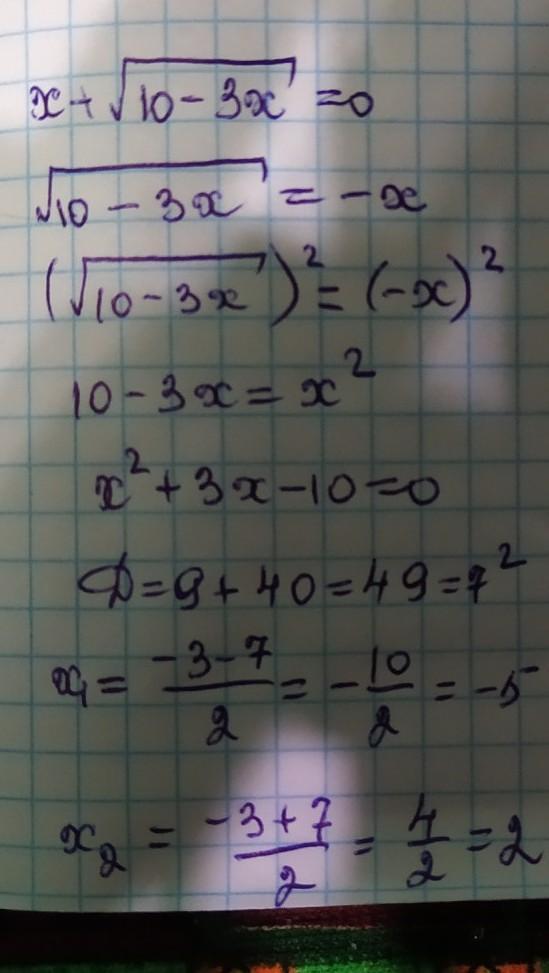 x + √(10 - 3x) = 0
√(10 - 3x) = -x
(√(10 - 3x))² = (-x)²
10 - 3x = x²
x² + 3x - 10 = 0
D = 9 + 40 = 49 = 7²
x₁ = (-3-7)/2 = -10/2 = -5
x₂ = (-3+7)/2 = 4/2 = 2